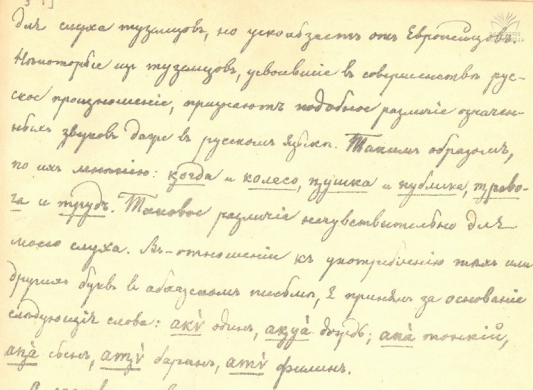 для слуха туземцовъ, но ускользаетъ отъ Европейцовъ.
Нѣкоторые изъ туземцовъ, усвоившіе въ совершенствѣ рус-
ское произношеніе, признаютъ подобное различіе означен-
ныхъ звуковъ даже въ русскомъ языкѣ. Такимъ образомъ,
по ихъ мнѣнію: когда и колесо, пушка и публика, трево-
га и трудъ. Таковое различіе нечувствительно для
моего слуха. Въ отношеніи къ употребленію тѣхъ или
другихъ буквъ въ абхазскомъ письмѣ, я принялъ за основаніе
слѣдующія слова: акы́ одинъ, дождь; апа́ тонкій,
сынъ, баранъ, аты́ филинъ.